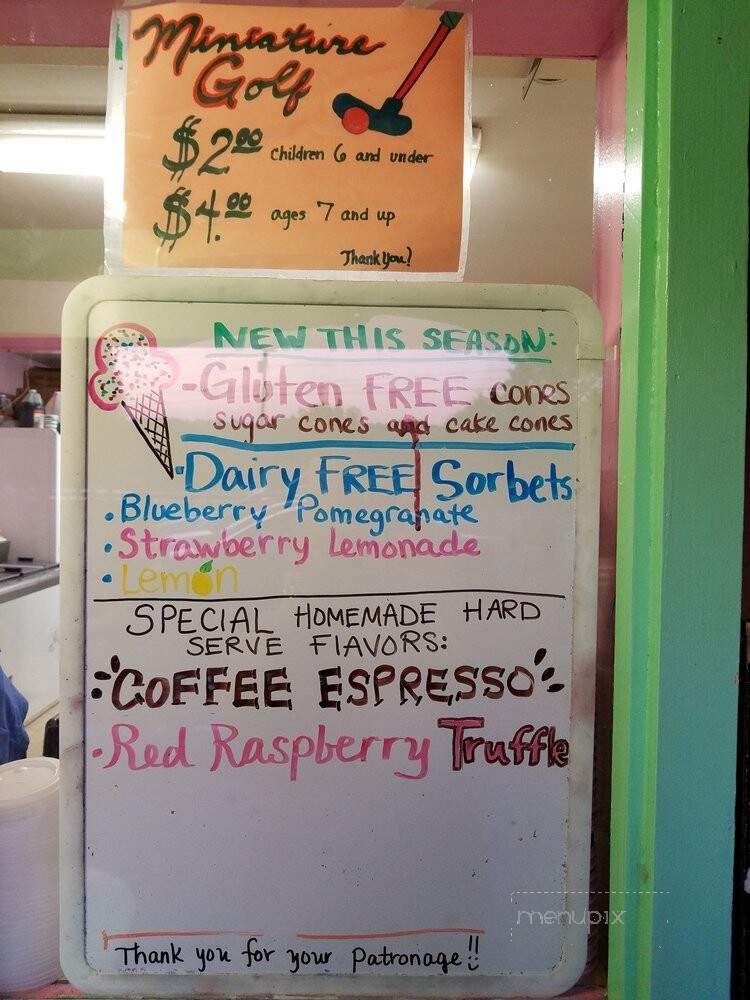 Miniature
Golf
$2.00 children 6 and under
$4.00 ages 7 and up
Thank you!
NEW THIS SEASON:
-Gluten FREE cones
sugar cones and cake cones
-Dairy FREE Sorbets
• Blueberry Pomegranate
• Strawberry Lemonade
• Lemon
SPECIAL HOMEMADE HARD
SERVE FlAVORS:
COFFEE ESPRESSO
• Red Raspberry Truffle
Thank you for your Patronage!!
menupix